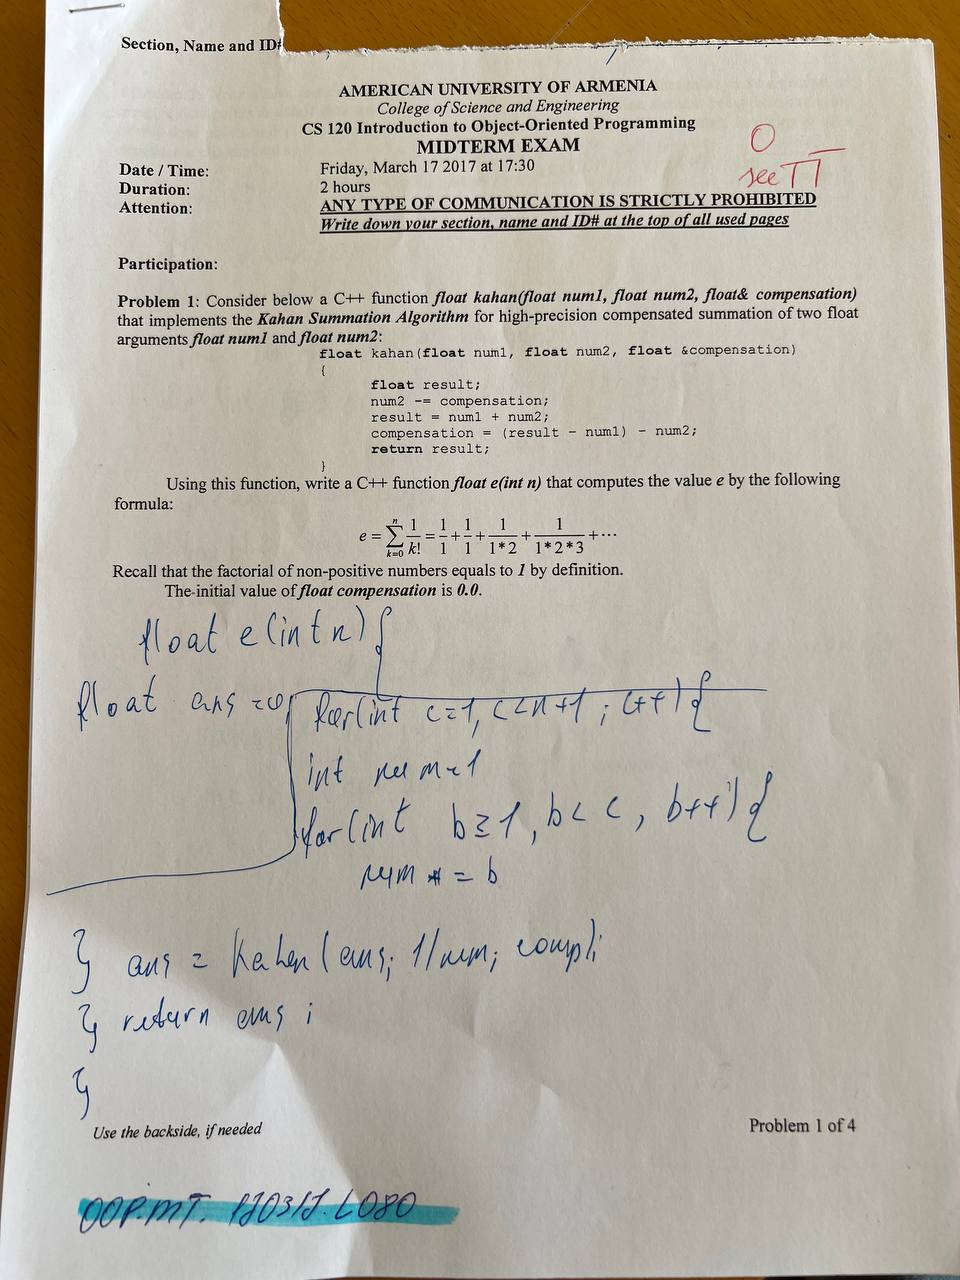 Section, Name and ID#
AMERICAN UNIVERSITY OF ARMENIA
College of Science and Engineering
CS 120 Introduction to Object-Oriented Programming
MIDTERM EXAM
0
see TT
Date / Time: Friday, March 17 2017 at 17:30
Duration: 2 hours
Attention: ANY TYPE OF COMMUNICATION IS STRICTLY PROHIBITED
Write down your section, name and ID# at the top of all used pages
Participation:
Problem 1: Consider below a C++ function float kahan(float num1, float num2, float& compensation)
that implements the Kahan Summation Algorithm for high-precision compensated summation of two float
arguments float num1 and float num2:
float kahan(float num1, float num2, float &compensation)
{
float result;
num2 -= compensation;
result = num1 + num2;
compensation = (result - num1) - num2;
return result;
}
Using this function, write a C++ function float e(int n) that computes the value e by the following
formula:
e = ∑ n k=0 1/k! = 1/1 + 1/1 + 1/1*2 + 1/1*2*3 + ···
Recall that the factorial of non-positive numbers equals to 1 by definition.
The initial value of float compensation is 0.0.
float e(int n){
float ans =0; for(int c=1, c<n+1; c++){
int num=1
for(int b=1, b<c, b++){
num *= b
} ans = Kahan(ans; 1/num; comp);
} return ans;
}
Use the backside, if needed
Problem 1 of 4
OOP.MT. 170317.L080